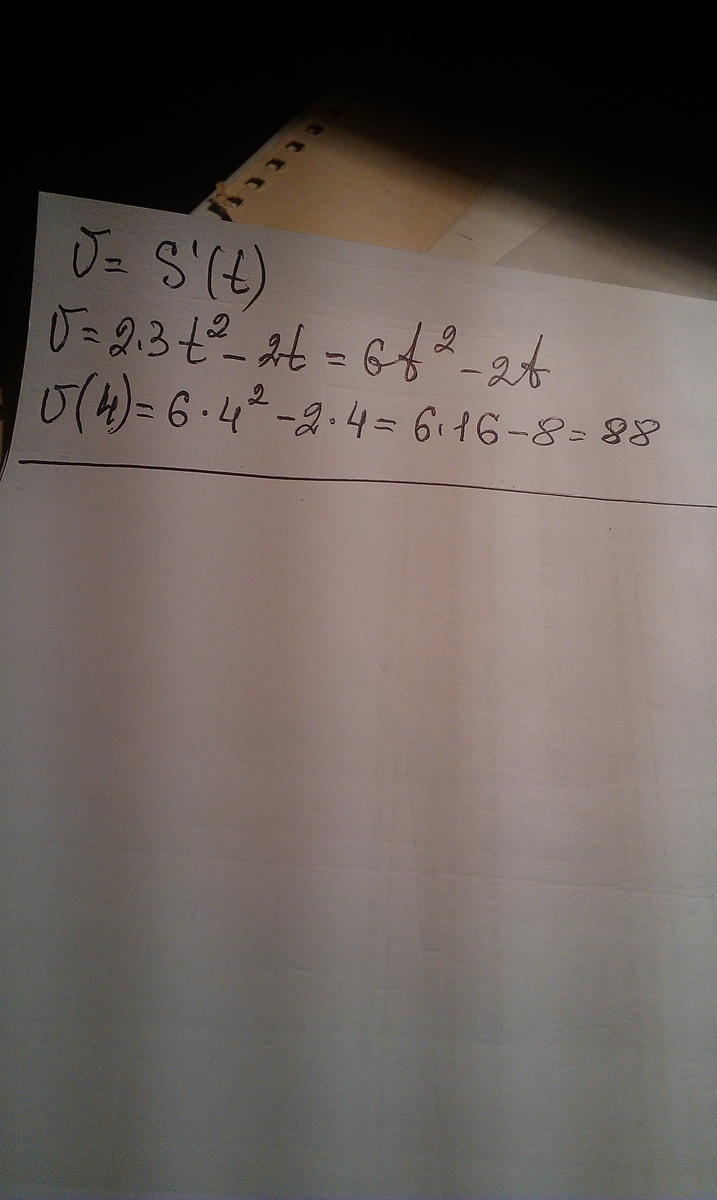 v = S'(t)
v = 2·3t² - 2t = 6t² - 2t
v(4) = 6·4² - 2·4 = 6·16 - 8 = 88